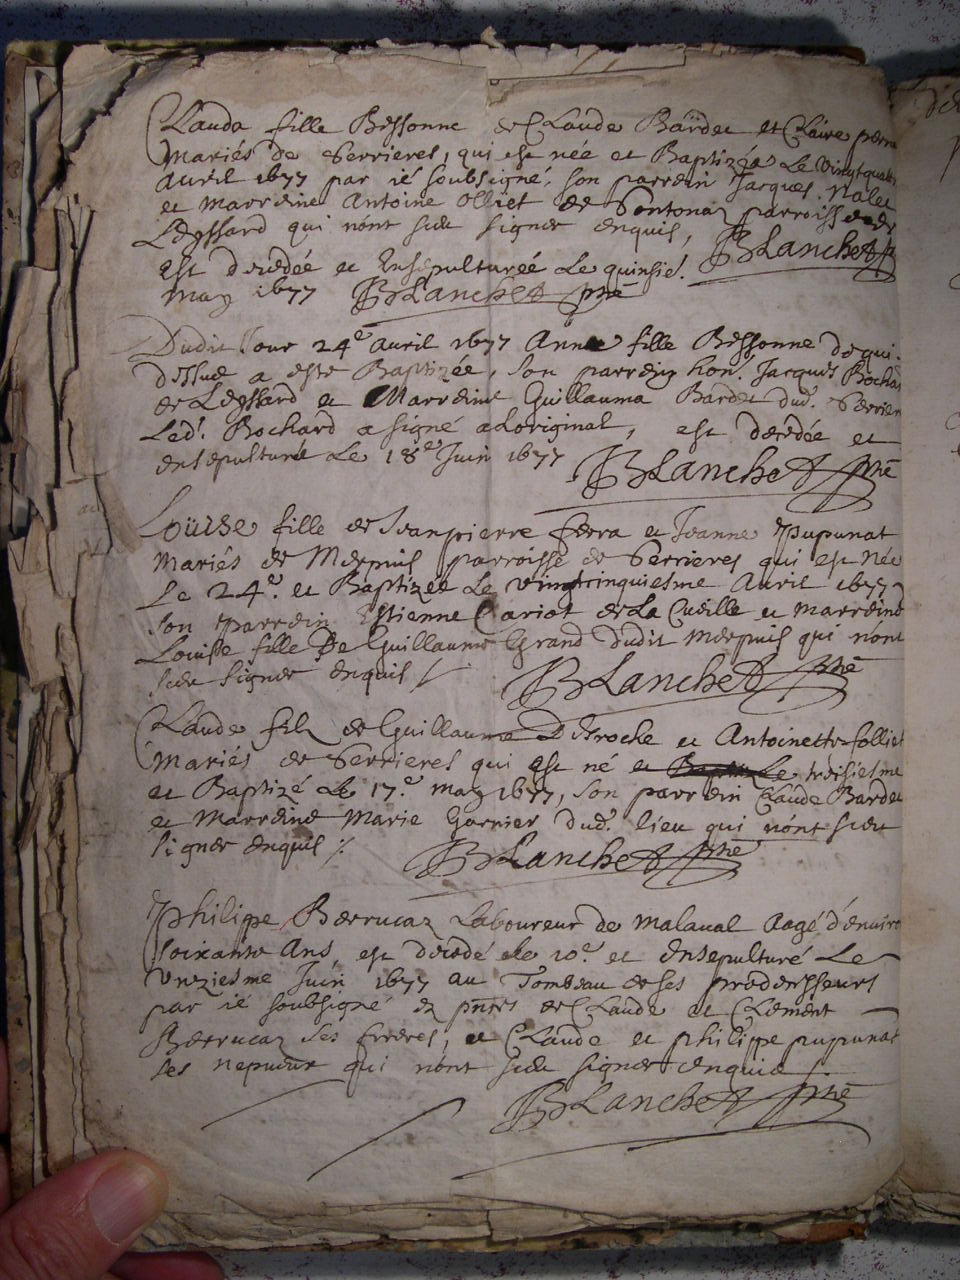 Clauda fille Bessonne de Claude Bardet et Claire
Mariés de Serrieres, qui est née et Baptizée Le Vingtquatr
avril 1677 par ie soubsigné, son parrein Jacques Nalet
et Marreine Antoine Olliet de Sontonaz parroisse de
Leyssard qui nont sceu signer enquis, BLanchet
est decedée et Ensepulturée Le quinsie.
May 1677 BLanchet pbre
Dudit Jour 24e avril 1677 Anne fille Bessonne de qui
dessus a este Baptizée, son parrein hon. Jacques Bochard
de Leyssard et Marreine Guillauma Bardet dud. Serrier
Led. Bochard a signé a Loriginal, est decedée et
ensepulturé Le 18e Juin 1677 BLanchet pbre
Louise fille de Jeanpierre ferra et Jeanne pupunat
Mariés de Merpuis parroisse de Serrieres qui est Née
Le 24e. et Baptizée Le vingtcinquiesme Avril 1677
son parrein Estienne Cariot de La Cueille et marreine
Louise fille De Guillaume Grand dudit merpuis qui n'ont
sceu signer enquis / BLanchet pbre
Claude filz de Guillaume Desroche et Antoinette folliet
Mariés de Serrieres qui est né et Baptizé Le treisiesme
et Baptizé Le 17.e may 1677, son parrein Claude Bardet
et Marreine Marie Garnier dud. lieu qui n'ont sceu
signer enquis BLanchet pbre
philippe Berrucaz Laboureur de malaval Aagé d'enviro
soixante Ans, est decedé le 10e. et Ensepulturé Le
Unziesme Juin 1677 au Tombeau de ses predecesseurs
par ie soubsigné ez pnces de Claude et CLement
Berrucaz ses freres, et Claude et philippe pupunat
ses nepueux qui n'ont sceu signer enquis
BLanchet pbre